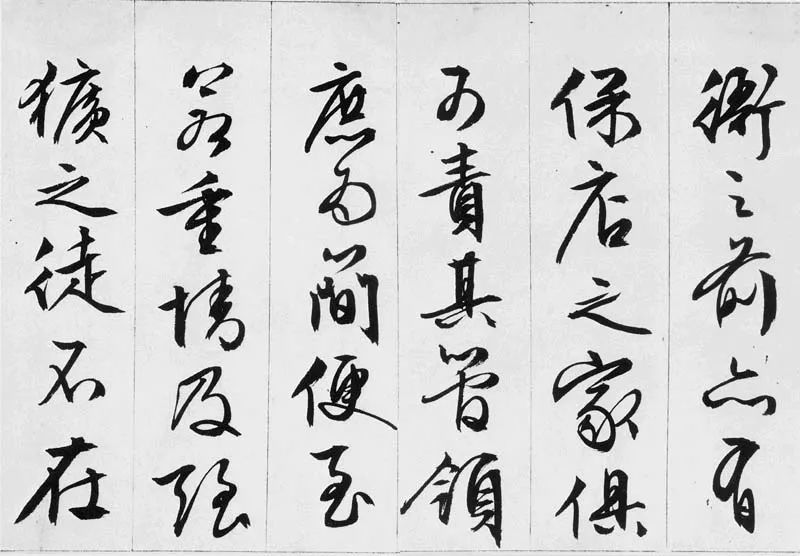 衙之前亦有
保店之家俱
可責其管領
庶為簡便至
若重情及强
獷之徒不在